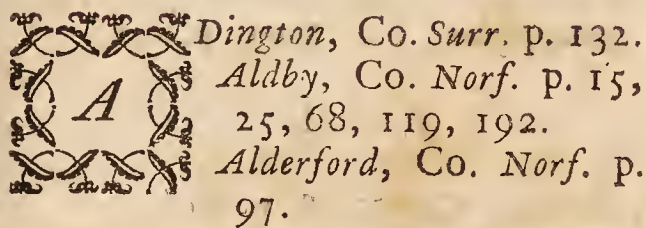 ADington, Co. Surr. p. 132.
Aldby, Co. Norf. p. 15,
25, 68, 119, 192.
Alderford, Co. Norf. p.
97.